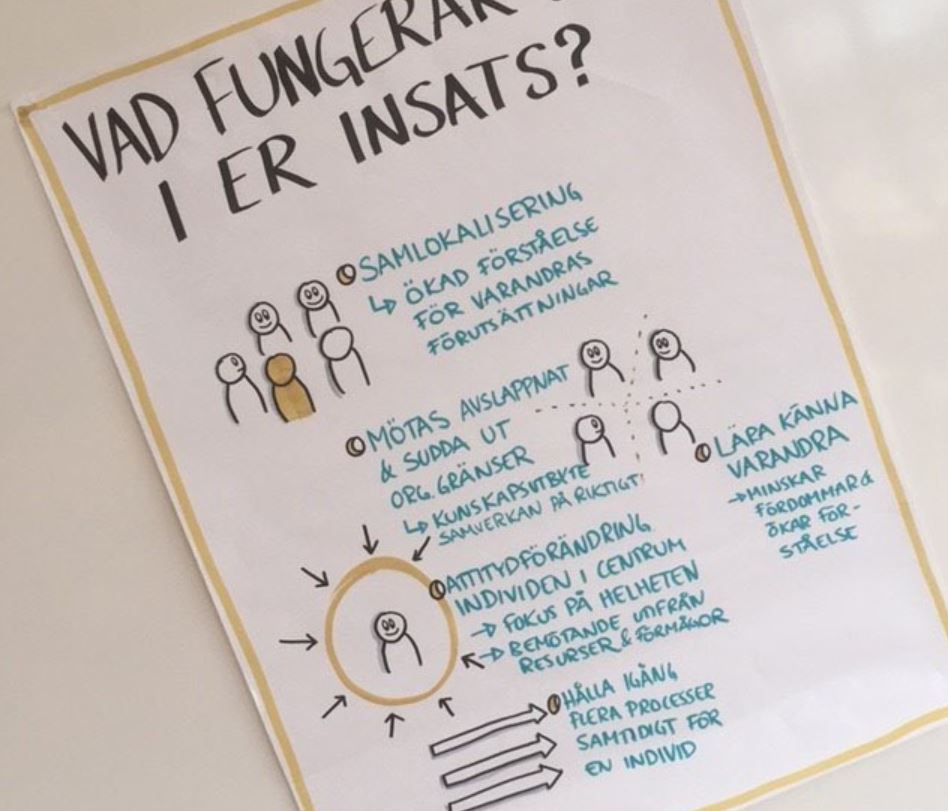 VAD FUNGERAR
I ER INSATS?
SAMLOKALISERING
↳ ÖKAD FÖRSTÅELSE
FÖR VARANDRAS
FÖRUTSÄTTNINGAR
MÖTAS AVSLAPPNAT
& SUDDA UT
ORG. GRÄNSER
↳ KUNSKAPSUTBYTE
SAMVERKAN PÅ RIKTIGT!
LÄRA KÄNNA
VARANDRA
→ MINSKAR
FÖRDOMMAR &
ÖKAR FÖR-
STÅELSE
ATTITYDFÖRÄNDRING
INDIVIDEN I CENTRUM
→ FOKUS PÅ HELHETEN
→ BEMÖTANDE UTIFRÅN
RESURSER & FÖRMÅGOR
HÅLLA IGÅNG
FLERA PROCESSER
SAMTIDIGT FÖR
EN INDIVID